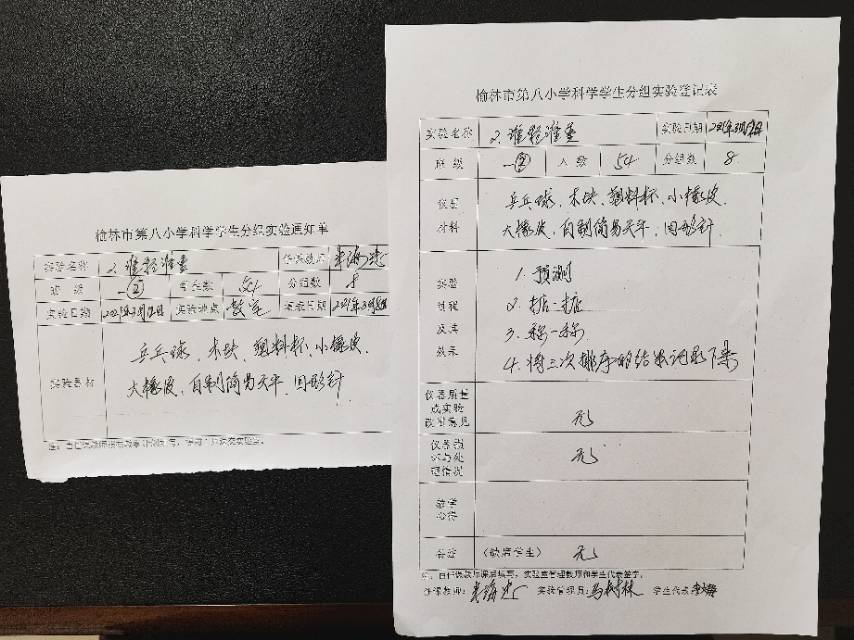 榆林市第八小学科学学生分组实验通知单
实验名称 2.谁轻谁重 任课教师
班级 一② 学生数 54 分组数 8
实验日期 实验地点 教室 通知日期
实验器材 乒乓球、木块、塑料杯、小橡皮、
大橡皮、自制简易天平、回形针
榆林市第八小学科学学生分组实验登记表
实验名称 2.谁轻谁重 实验日期
班级 一② 人数 54 分组数 8
仪器材料 乒乓球、木块、塑料杯、小橡皮、
大橡皮、自制简易天平、回形针
实验过程及其效果 1.预测
2.掂一掂
3.称一称
4.将三次排序的结果记录下来
仪器质量或实验改进意见 无
仪器损坏与处理情况 无
教学心得
备注 (缺席学生) 无
注:由任课教师课后填写,实验室管理教师和学生代表签字。
任课教师: 实验管理员:马树林 学生代表: